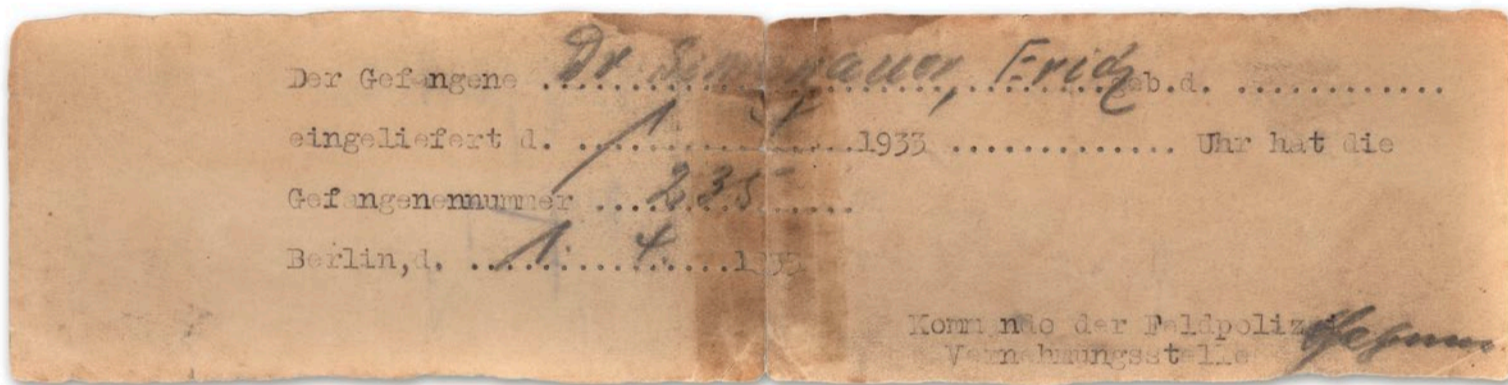 Der Gefangene .... Dr Simenauer, Erich geb.d. .............
eingeliefert d. 1. 4. 1933 .............. Uhr hat die
Gefangenennummer .... 235 ....
Berlin,d. .... 1. 4. .... 1933
Kommando der Feldpolizei
Vernehmungsstelle